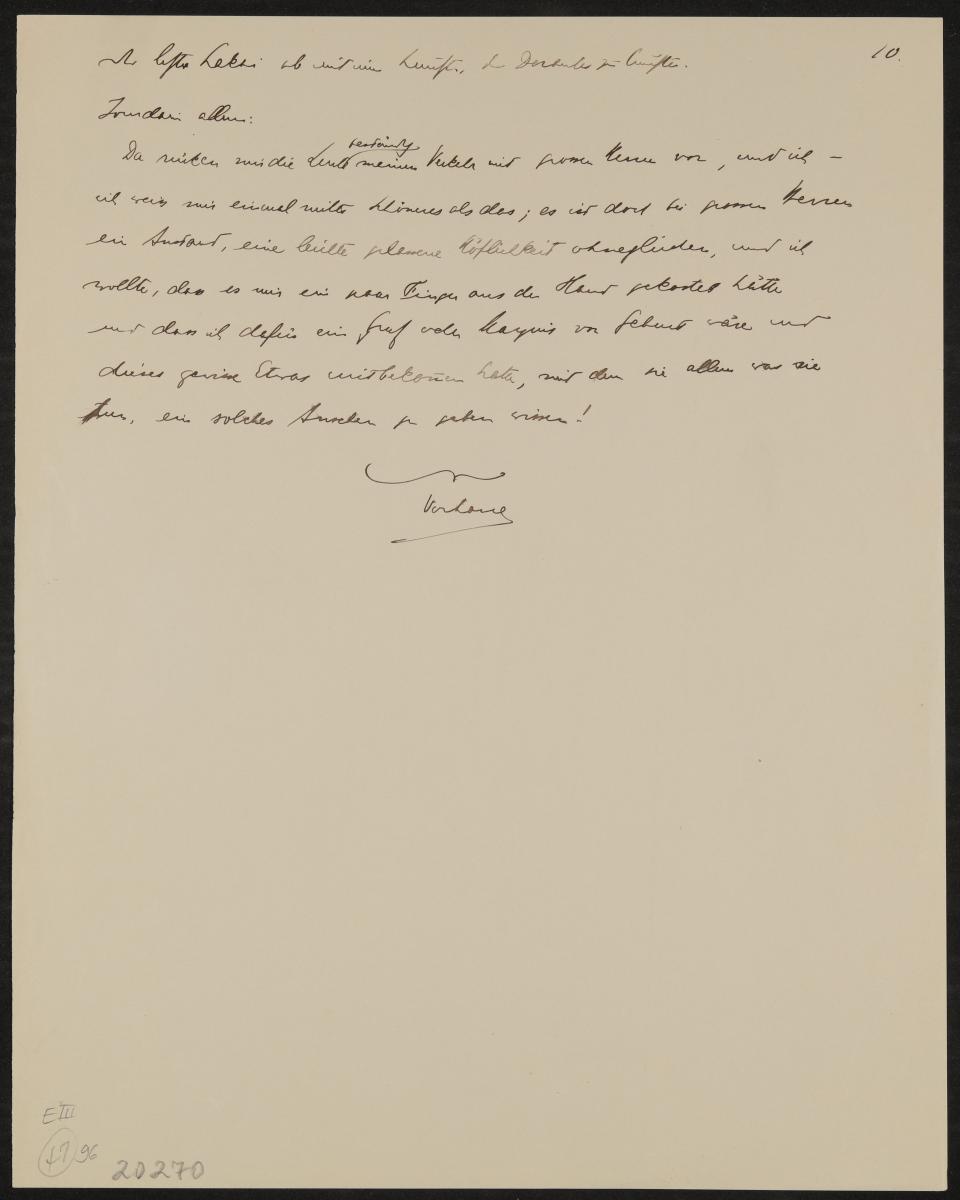 10.
Der letzte Lakai ab mit ein
Jourdain allein:
beständig
Da rücken mir die Leute meinen Verkehr mit grossen Herren vor, und ich –
ich weiss mir einmal nichts schöneres als das; es ist doch bei grossen Herren
ein Anstand, eine leichte gelassene Höflichkeit ohnegleichen, und ich
wollte, dass es mir ein paar Finger aus der Hand gekostet hätte
und dass ich dafür ein Graf oder Marquis von Geburt wäre und
dieses gewisse Etwas mitbekommen hätte, mit dem sie allem was sie
tun, ein solches Ansehen zu geben wissen!
Vorhang
E III
96
20270